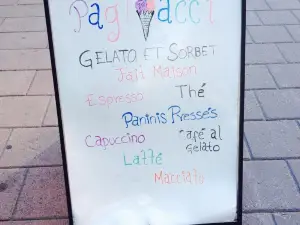 Pagliacci
GELATO ET SORBET
fait Maison
Espresso
Thé
Paninis Pressés
Capuccino
Café al Gelato
Latté
Macciato